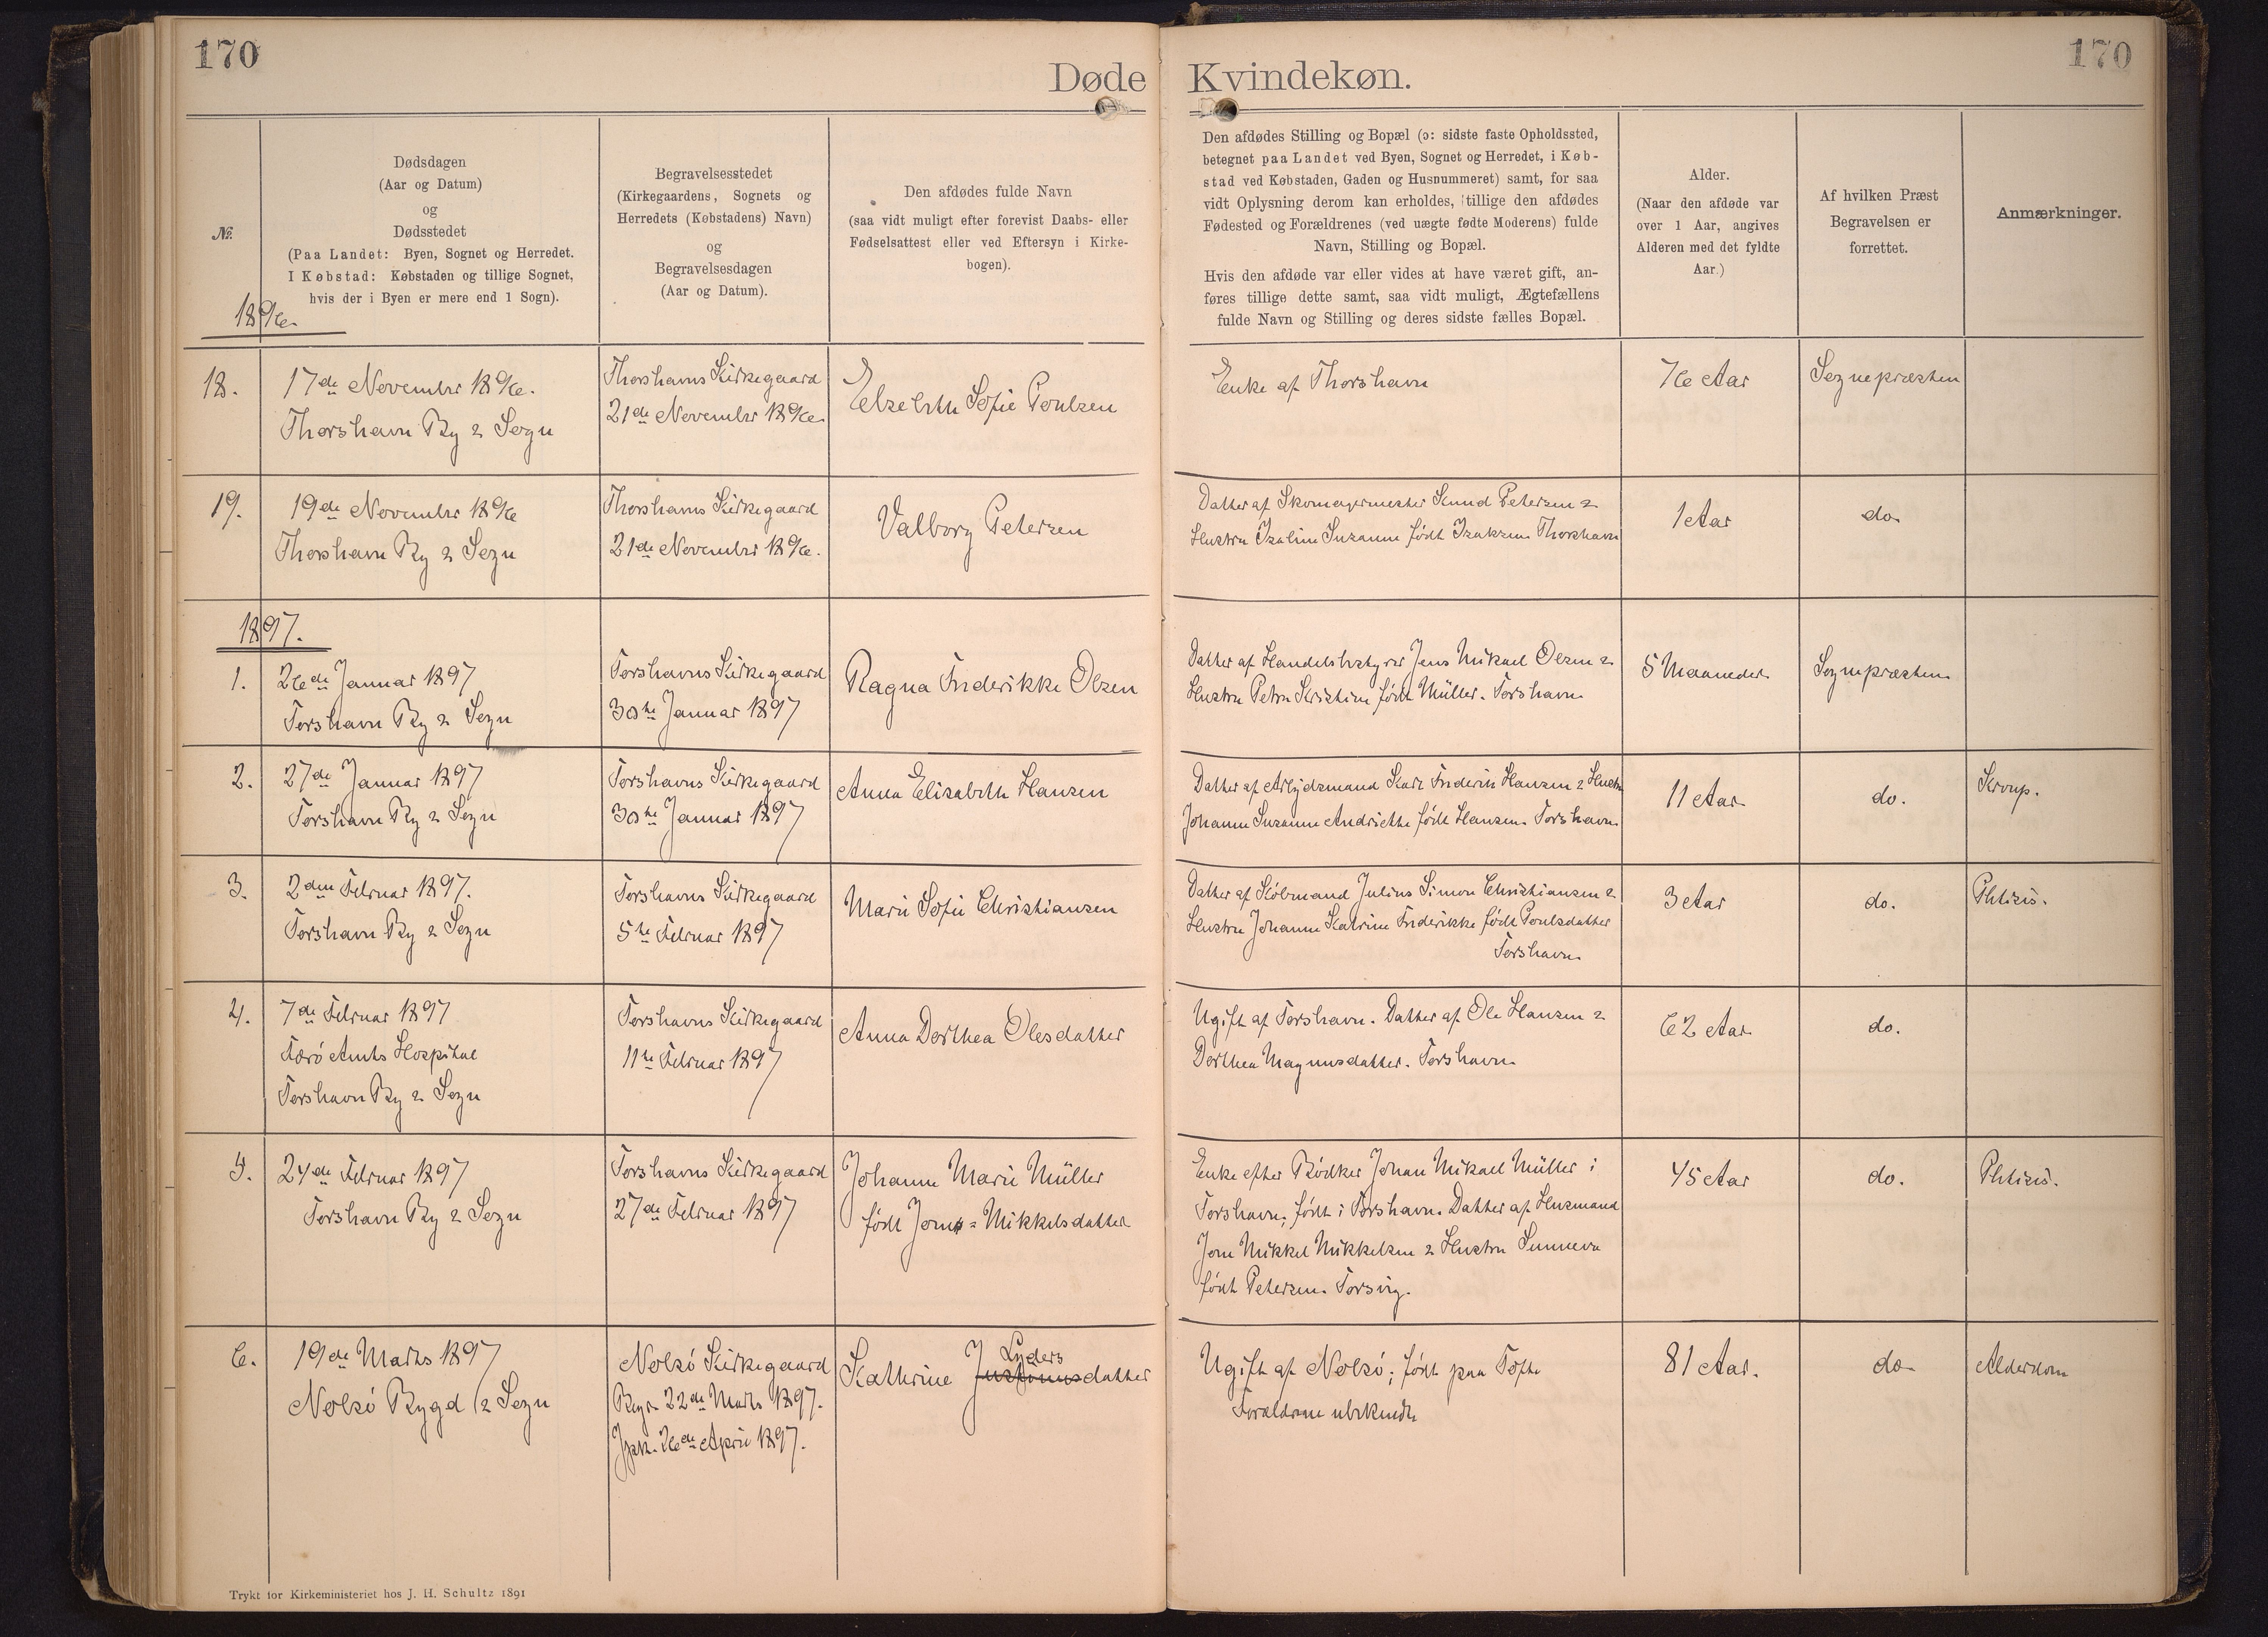 170
170
Døde Kvindekøn.
№
Dødsdagen
(Aar og Datum)
og
Dødsstedet
(Paa Landet: Byen, Sognet og Herredet.
I Købstad: Købstaden og tillige Sognet,
hvis der i Byen er mere end 1 Sogn).
Begravelsesstedet
(Kirkegaardens, Sognets og
Herredets (Købstadens) Navn)
og
Begravelsesdagen
(Aar og Datum).
Den afdødes fulde Navn
(saa vidt muligt efter forevist Daabs- eller
Fødselsattest eller ved Eftersyn i Kirke-
bogen).
Den afdødes Stilling og Bopæl (ɔ: sidste faste Opholdssted,
betegnet paa Landet ved Byen, Sognet og Herredet, i Køb-
stad ved Købstaden, Gaden og Husnummeret) samt, for saa
vidt Oplysning derom kan erholdes, tillige den afdødes
Fødested og Forældrenes (ved uægte fødte Moderens) fulde
Navn, Stilling og Bopæl.
Hvis den afdøde var eller vides at have været gift, an-
føres tillige dette samt, saa vidt muligt, Ægtefællens
fulde Navn og Stilling og deres sidste fælles Bopæl.
Alder.
(Naar den afdøde var
over 1 Aar, angives
Alderen med det fyldte
Aar.)
Af hvilken Præst
Begravelsen er
forrettet.
Anmærkninger.
1896.
18.
17de November 1896.
Thorshavn By & Sogn
Thorshavns Kirkegaard
21de November 1896.
Elsebeth Sofie Poulsen
Enke af Thorshavn
76 Aar
Sognepræsten
19.
19de November 1896
Thorshavn By & Sogn
Thorshavns Kirkegaard
21de November 1896.
Valborg Petersen
Datter af Skomagermester Knud Petersen &
Hustru Isaline Susanne født Isaksen. Thorshavn
1 Aar
do.
1897.
1.
26de Januar 1897
Torshavn By & Sogn
Torshavns Kirkegaard
30te Januar 1897
Ragna Frederikke Olsen
Datter af Handelsbestyrer Jens Mikael Olsen &
Hustru Petra Kristine født Müller. Torshavn.
5 Maaneder.
Sognepræsten.
2.
27de Januar 1897
Torshavn By & Sogn
Torshavns Kirkegaard
30te Januar 1897
Anna Elisabeth Hansen
Datter af Arbejdsmand Karl Frederik Hansen & Hustru
Johanne Susanne Andriette født Hansen. Torshavn.
11 Aar.
do.
Krup.
3.
2den Februar 1897.
Torshavn By & Sogn
Torshavns Kirkegaard
5te Februar 1897
Marie Sofie Christiansen
Datter af Købmand Julius Simon Christiansen &
Hustru Johanne Katrine Frederikke født Poulsdatter
Torshavn.
3 Aar
do.
Phtisis.
4.
7de Februar 1897
Færö Amts Hospital
Torshavn By & Sogn
Torshavns Kirkegaard
11te Februar 1897
Anna Dorthea Olesdatter
Ugift af Torshavn. Datter af Ole Hansen &
Dorthea Magnusdatter. Torshavn.
62 Aar.
do.
5.
24de Februar 1897
Torshavn By & Sogn
Torshavns Kirkegaard
27de Februar 1897
Johanne Marie Müller
født Jom = Mikkelsdatter
Enke efter Bödker Johan Mikael Müller i
Torshavn; født i Torshavn. Datter af Husmand
Joen Mikkel Mikkelsen & Hustru Sunneva
født Petersen. Torsvig.
45 Aar
do.
Phtisis.
6.
19de Marts 1897
Nolsö Bygd & Sogn
Nolsö Kirkegaard
Begr. 22de Marts 1897.
Jpk. 26de April 1897.
Lyders
Kathrine Justinusdatter
Ugift af Nolsö; født paa Tofte
Forældrene ubekendte
81 Aar.
do
Alderdom
Trykt for Kirkeministeriet hos J. H. Schultz 1891